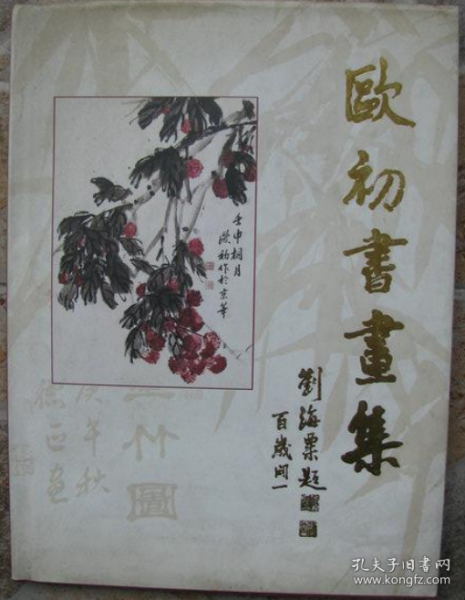 歐初書畫集
劉海粟題
百歲開一
壬申桐月
歐初作於京華
竹圖
庚午秋
孔夫子旧书网
www.kongfz.com